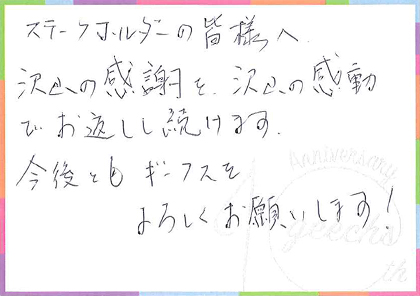 ステークホルダーの皆様へ
沢山の感謝を、沢山の感動
でお返しし続けます.
今後ともギークスを
よろしくお願いします!
Anniversary
geechs
th